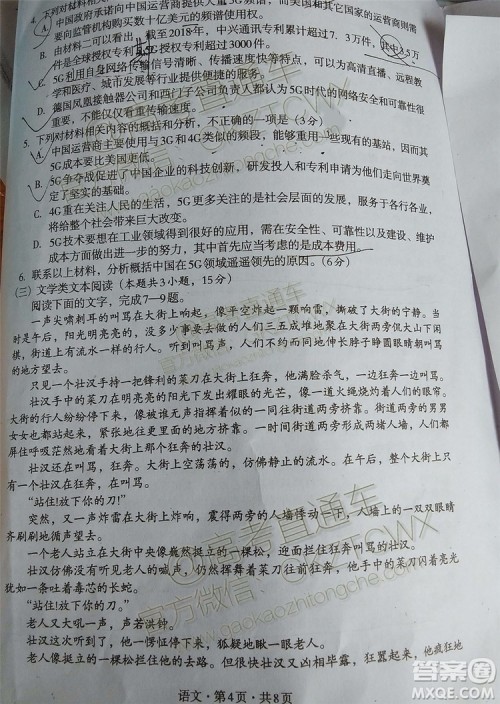 4. 下列对材料相关
A. 中国政府承诺向中国运营商提供大量5G频谱，而美国和其它国家的运营商则需
要向监管机构购买数十亿美元的频谱使用权。
B. 由材料二可以看出，截至2018年，中兴通讯专利累计超过7.3万件，其中3.5万
件是全球授权专利，5G授权专利超过3000件。
C. 5G利用自身网络传输信号清晰、传播速度快等特点，可以为高清直播、远程教
学和医疗、城市发展等行业提供升级服务。
D. 德国凤凰接触器公司和西门子公司负责人都认为5G时代的网络安全和可靠性很
重要，不能仅仅看重传输速度。
5. 下列对材料相关内容的概括和分析，不正确的一项是（3分）
A. 中国运营商主要使用与3G和4G类似的频段，能够重 现有的基站，
5G成本要比美国更低。
B. 5G争夺战促进了中国企业的科技创新，研发投入和专利申请为他们走向世界奠
定了坚实的基础。
C. 4G重在关注人民的生活，5G更多关注的是社会层面的发展，5G的广泛应用必
将给整个社会带来巨大改变。
D. 5G技术要想在工业领域得到很好的运用，需在安全性、可靠性以及建设、维护
成本上面做出进一步的努力，其中首先应当考虑的是成本费用。
6. 联系以上材料，分析概括中国在5G领域遥遥领先的原因。（6分）
（三）文学类文本阅读（本题共3小题，15分）
阅读下面的文章，完成7—9题。
一声尖啸刺耳的叫骂在大街炸响，像平空炸起一颗雷响，撕碎了大街的宁静。当
时是午后，阳光明亮亮的，在大街上边走边卖的人们三五成堆地聚在大街两旁侃大山下闲
棋，街道上有流水一样的行人。叫骂声震得街道上的人一愣，不由地伸长脖子睁圆眼睛朝叫骂
的地方望去。
只见一个老壮汉手持一把锋利的菜刀在大街上狂奔，他满脸杀气，一边狂奔，一边叫骂。
壮汉手中的菜刀在明亮亮的阳光下发出耀眼的光芒，像一道火绳烧灼着人们的眼睛。
大街的行人纷纷停下来，像被大风猛刮了一下一样向街道两旁挤靠。街道两旁的男男
女女也都倏地站起来，紧张地往更里面的地方挤靠，一时间街道两旁形成两堵人墙，人们都
屏住呼吸茫然地看着狂奔的壮汉。
壮汉还在叫骂，还在狂奔。大街上空荡荡的，仿佛静止了一样。
“站住！放下你的刀！”
突然，又一声炸雷在大街上炸响，震得两旁的人墙悸动一下，人墙上的一双双眼睛
齐刷刷地循声望去。
一个老人站立在大街中央像巍然挺立的一棵松，迎面站着狂奔叫骂的壮汉。
壮汉仿佛没有听见老人的喊声，仍然挥舞着菜刀往前狂奔，他手中的菜刀闪着亮光，
犹如一条吐着毒芯的长蛇。
“站住！放下你的刀。”
老人又大吼一声，声若洪钟。
壮汉这次听到了，他一愣怔停下来，狐疑地
老人像挺立的一棵松挺拔耸立，但很快壮汉的凶相毕露，狂嚣起来，他疯狂地
语文·第4页·共8页
QQ高考直通车
官方微信：GKZTCWX
www.gaokaozhitongche.com
答案圈
MXQE.COM